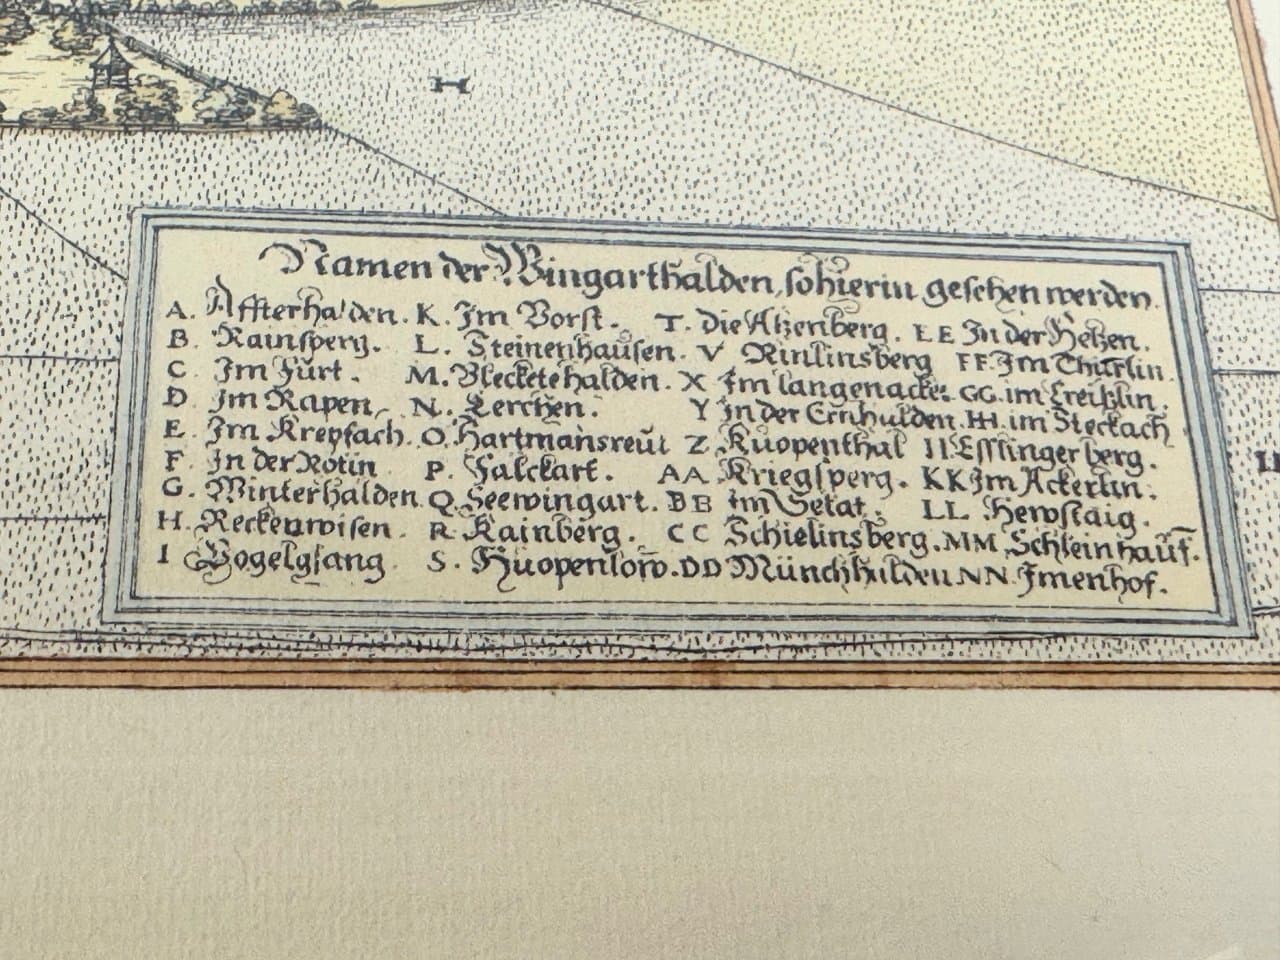 H
Namen der Wingarthalden, so hierin geschen werden.
A. Affterhalden. K. Im Vorst. T. die Atzenberg. EE In der Hetzen.
B. Rainsperg. L. Steinenhausen. V Rinlinsberg FF. Im Thürlin.
C. Im Furt. M. Vleckete halden. X Im langenacker GG. im Creißlin.
D. Im Rapen, N. Lerchen. Y In der Ernhalden. HH. im Steckach
E. Im Krepfach. O. Hartmansreut Z Kuopenthal II. Esslingerberg.
F. In der Rotin P. Falckart. AA Kriegsperg. KK Im Äckerlin.
G. Winterhalden. Q. Seewingart. BB Im Setat. LL Hewstaig.
H. Reckenwisen. R Kainberg. CC Schielinsberg. MM Schleinhauf.
I Vogelgsang. S. Huopenlow. DD Münchhalden NN. Imenhof.